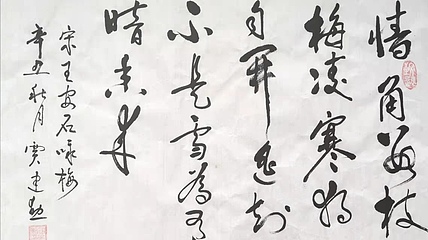 墙角数枝
梅凌寒独
自開遥知
不是雪为有
暗香来
宋王安石咏梅
辛丑秋月贾建